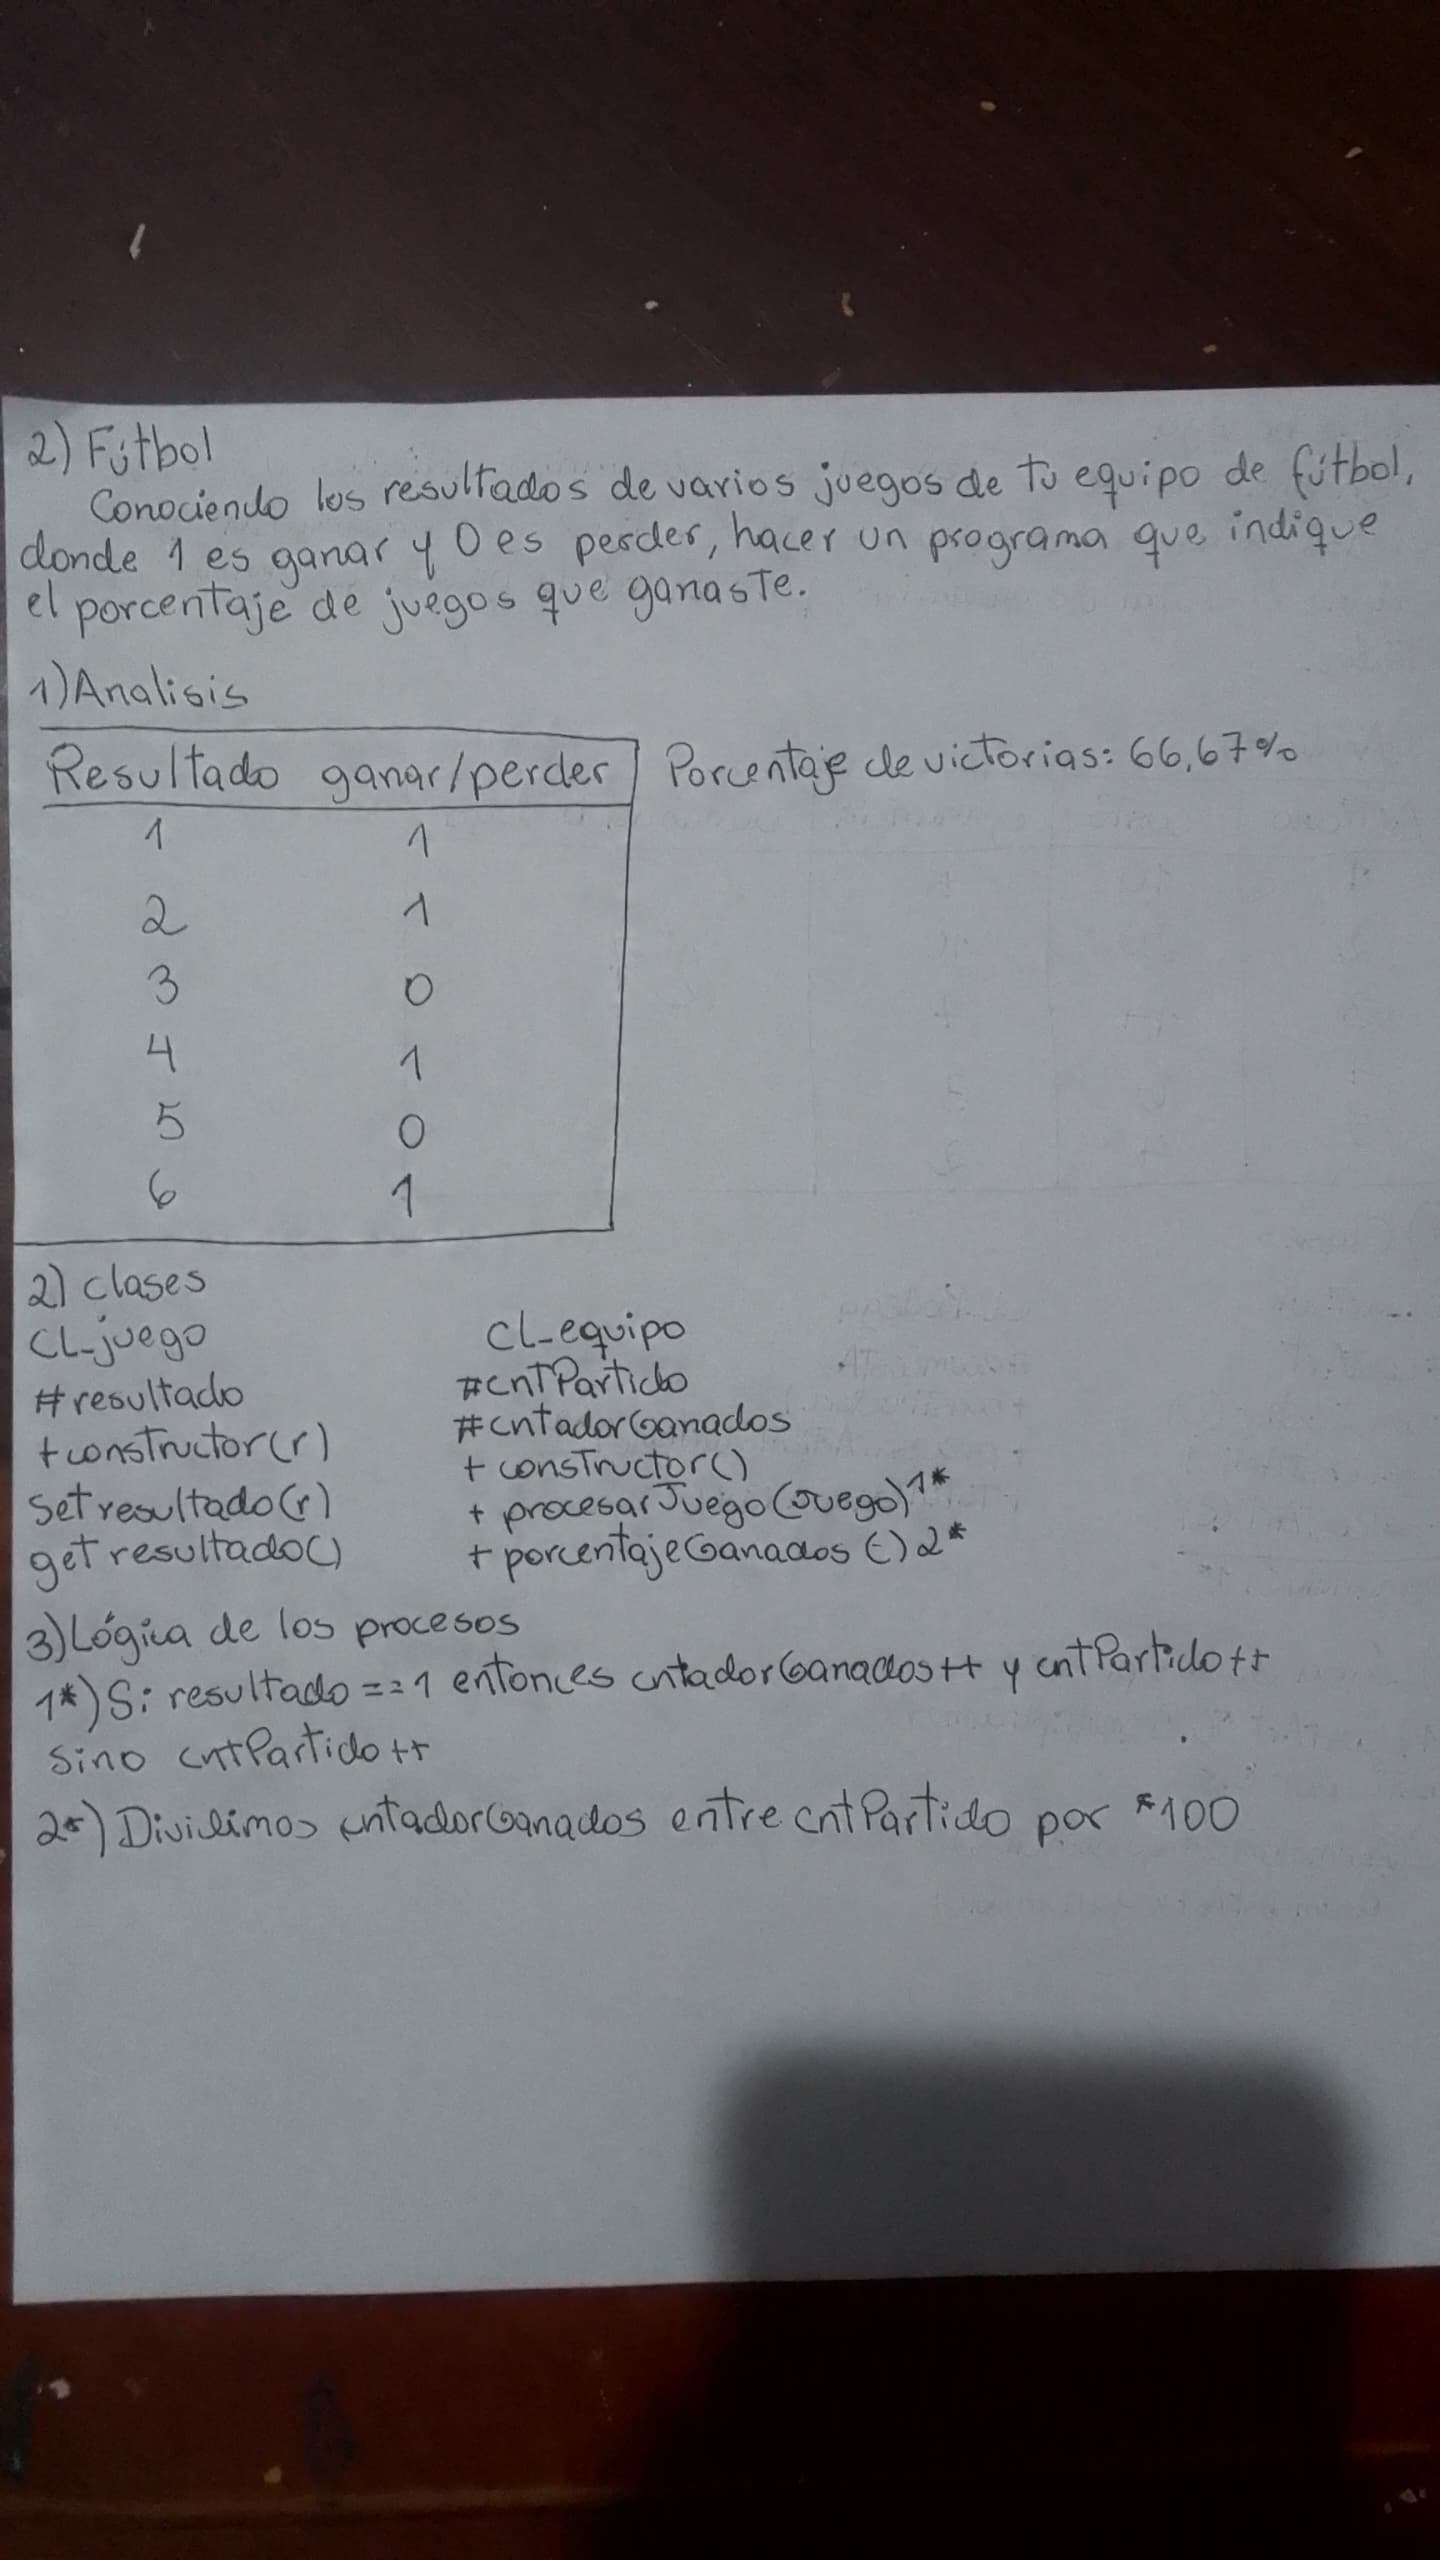 2) Fútbol
Conociendo los resultados de varios juegos de tu equipo de fútbol,
donde 1 es ganar y 0 es perder, hacer un programa que indique
el porcentaje de juegos que ganaste.
1) Analisis
Resultado ganar/perder Porcentaje de victorias: 66,67%
1 1
2 1
3 0
4 1
5 0
6 1
2) clases
CL_juego CL_equipo
#resultado #cntPartido
+constructor(r) #cntadorGanados
Set resultado(r) + constructor()
get resultado() + procesarJuego(Juego) 1*
+ porcentajeGanados (-) 2*
3) Lógica de los procesos
1*) Si resultado == 1 entonces cntadorGanados++ y cntPartido++
sino cntPartido++
2*) Dividimos cntadorGanados entre cntPartido por *100